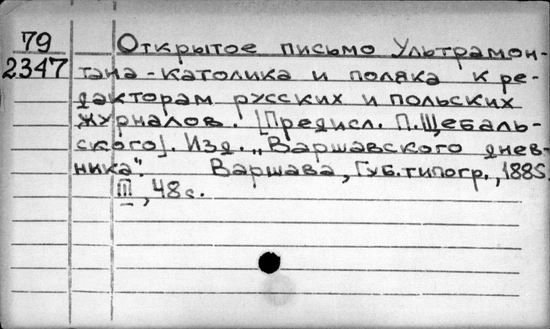 79
2347
Открытое письмо Ультрамон-
тана-католика и поляка к ре-
дакторам русских и польских
журналов. [Предисл. П. Щебаль-
ского]. Изд. „Варшавского днев-
ника". Варшава, Губ. типогр., 1885.
III, 48 с.